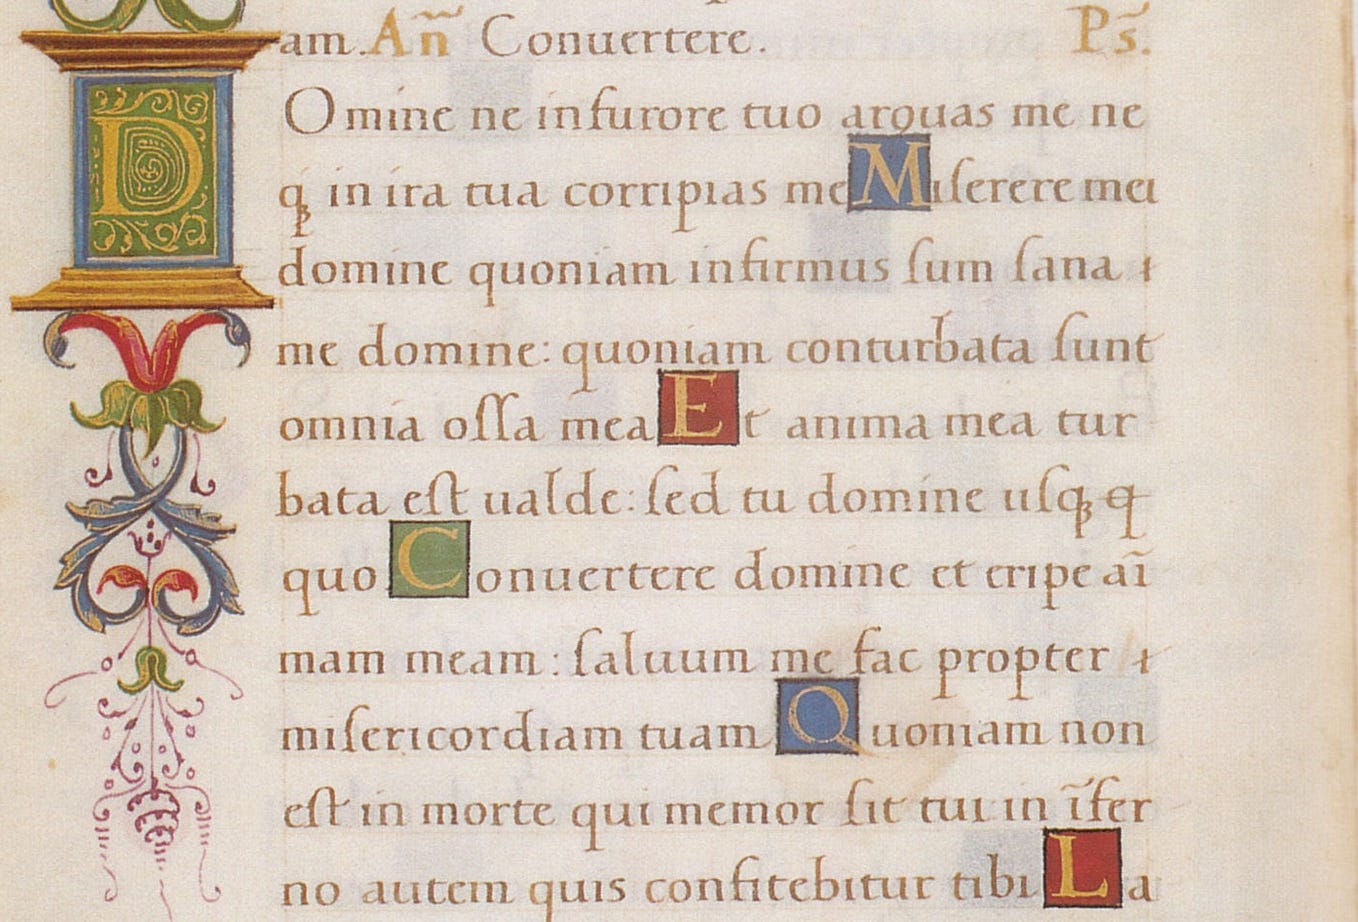 am. Añ Conuertere. Ps̄.
D Omine ne in furore tuo arguas me ne
qꝫ in ira tua corripias me Miſerere mei
domine quoniam infirmus ſum ſana
me domine: quoniam conturbata ſunt
omnia oſſa mea Et anima mea tur
bata eſt ualde: ſed tu domine uſqꝫ q
quo Conuertere domine et eripe aı̄
mam meam: ſaluum me fac propter
miſericordiam tuam Quoniam non
eſt in morte qui memor ſit tui in ı̄fer
no autem quis confitebitur tibi La